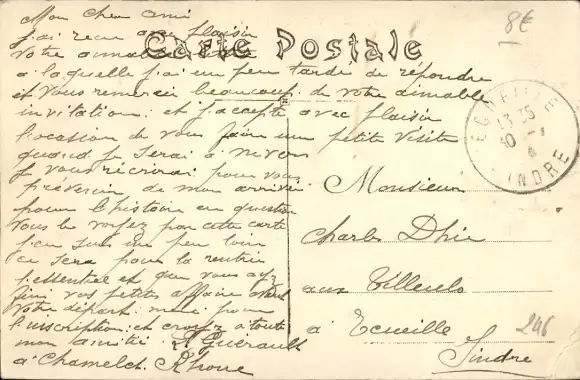 Carte Postale
8€
Mon cher ami
j'ai reçu avec plaisir
votre aimable
à laquelle j'ai un peu tardé de répondre
et vous remercie beaucoup de votre aimable
invitation; et j'accepte avec plaisir
l'occasion de vous faire une petite visite
quand je serai à
je vous récrirai pour vous
prévenir de mon arrivée
pour l'histoire en question
vous le voyez par cette carte
j'en suis un peu loin
ce sera pour la rentrée
l'essentiel et que vous ayez
fini vos petites affaire avant
votre départ: merci pour
l'inscription; et croyez à toute
mon amitié. Guérault
à Chamelet. Rhône
Monsieur
Charles
aux
à Ecueillé
Indre
246
13 35
INDRE